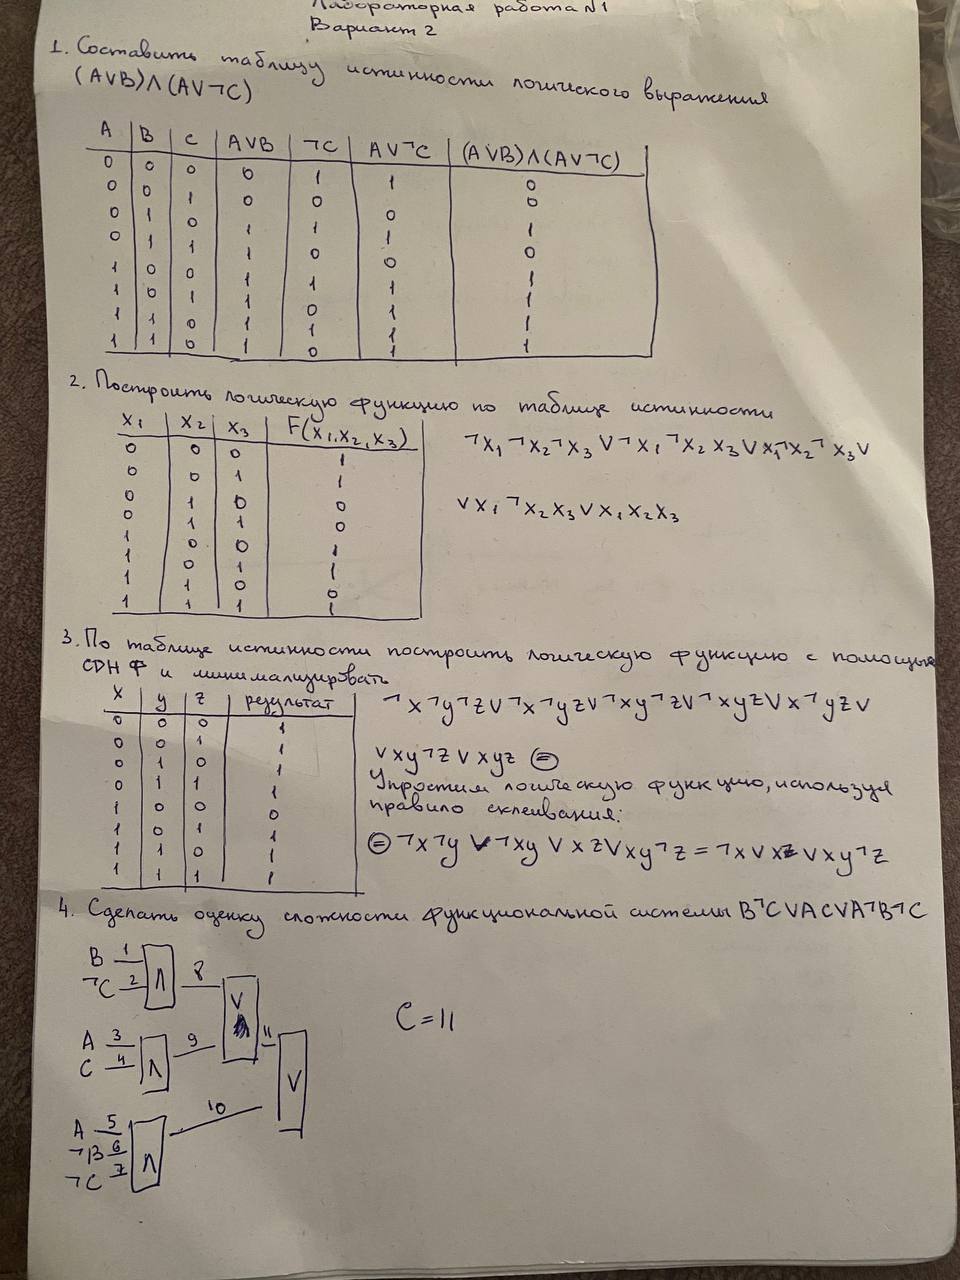 Лабораторная работа N1
Вариант 2
1. Составить таблицу истинности логического выражения
(A∨B)∧(A∨¬C)
A B C A∨B ¬C A∨¬C (A∨B)∧(A∨¬C)
0 0 0 0 1 1 0
0 0 1 0 0 0 0
0 1 0 1 1 1 1
0 1 1 1 0 0 0
1 0 0 1 1 1 1
1 0 1 1 0 1 1
1 1 0 1 1 1 1
1 1 0 1 0 1 1
2. Построить логическую функцию по таблице истинности
x1 x2 x3 F(x1,x2,x3)
0 0 0 1
0 0 1 1
0 1 0 0
0 1 1 0
1 0 0 1
1 0 1 1
1 1 0 0
1 1 1 1
¬x1¬x2¬x3∨¬x1¬x2x3∨x1¬x2¬x3∨
∨x1¬x2x3∨x1x2x3
3. По таблице истинности построить логическую функцию с помощью
СДНФ и минимализировать
x y z результат
0 0 0 1
0 0 1 1
0 1 0 1
0 1 1 1
1 0 0 0
1 0 1 1
1 1 0 1
1 1 1 1
¬x¬y¬z∨¬x¬yz∨¬xy¬z∨¬xyz∨x¬yz∨
∨xy¬z∨xyz =
Упростим логическую функцию, используя
правило склеивания:
= ¬x¬y∨¬xy∨xz∨xy¬z=¬x∨xz∨xy¬z
4. Сделать оценку сложности функциональной системы B¬C∨AC∨A¬B¬C
B 1
¬C 2 ∧ 8
∨
A 3
C 4 ∧ 9 11
∨
C=11
A 5
¬B 6
¬C 7 ∧ 10